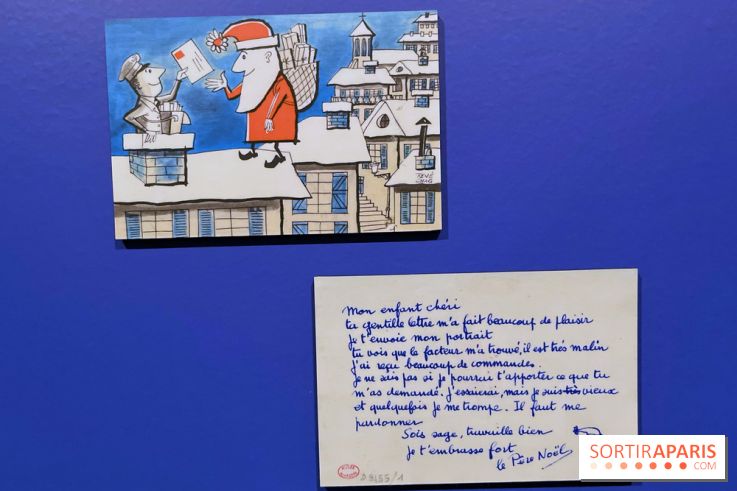 RENÉ
Mon enfant chéri
ta gentille lettre m'a fait beaucoup de plaisir
Je t'envoie mon portrait
tu vois que le facteur m'a trouvé, il est très malin
J'ai reçu beaucoup de commandes.
Je ne sais pas si je pourrai t'apporter ce que tu
m'as demandé. J'essaierai, mais je suis très vieux
et quelquefois je me trompe. Il faut me
pardonner
Sois sage, travaille bien
Je t'embrasse fort
le Père Noël
SORTIRAPARIS
.COM